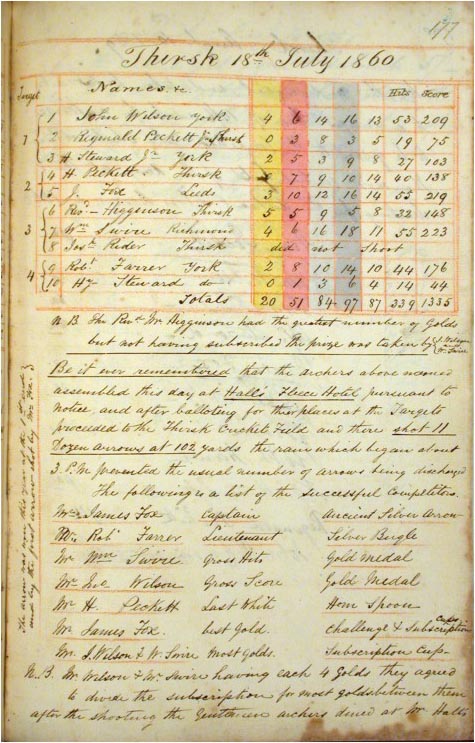 177
Thirsk 18th July 1860
Target Names &c. Hits Score
1 1 John Wilson York 4 6 14 16 13 53 209
2 Reginald Peckett Jr Thirsk 0 3 8 3 5 19 75
3 H Steward Jr York 2 5 3 9 8 27 103
2 4 H Peckett Thirsk 7 9 10 14 40 138
5 J. Fox Leeds 3 10 12 16 14 55 219
3 6 Revd - Higginson Thirsk 5 5 9 5 8 32 148
7 Wm Swire Richmond 4 6 16 18 11 55 223
8 Josh Rider Thirsk did not Shoot
4 9 Robt Farrer York 2 8 10 14 10 44 176
10 Hy Steward do 0 1 3 6 4 14 44
Totals 20 51 84 97 87 339 1335
N.B The Revd Mr Higginson had the greatest number of Golds
but not having subscribed the prize was taken by J. Wilson and W. Swire
Be it ever remembered that the archers above named
assembled this day at Hall's Fleece Hotel pursuant to
notice, and after balloting for their places at the Targets
proceeded to the Thirsk Cricket Field and there shot 11
Dozen arrows at 102 yards the rain which began about
3 P.M prevented the usual number of arrows being discharged
The following is a list of the successful Competitors.
Mr James Fox Captain Ancient Silver Arrow
Mr Robt Farrer Lieutenant Silver Bugle
Mr Wm Swire Gross Hits Gold Medal
Mr Jno Wilson Gross Score Gold Medal
Mr H. Peckett Last White Horn Spoon
Mr James Fox. best Gold. Challenge & Subscription Cups
Mr. J. Wilson & W. Swire Most Golds. Subscription Cup
N.B. Mr Wilson & Mr Swire having each 4 Golds they agreed
to divide the subscription for most golds between them
after the shooting the Gentlemen archers dined at Mr Halls
The arrow was won this year at the 1st end
and by the first arrow shot by Mr Fox.